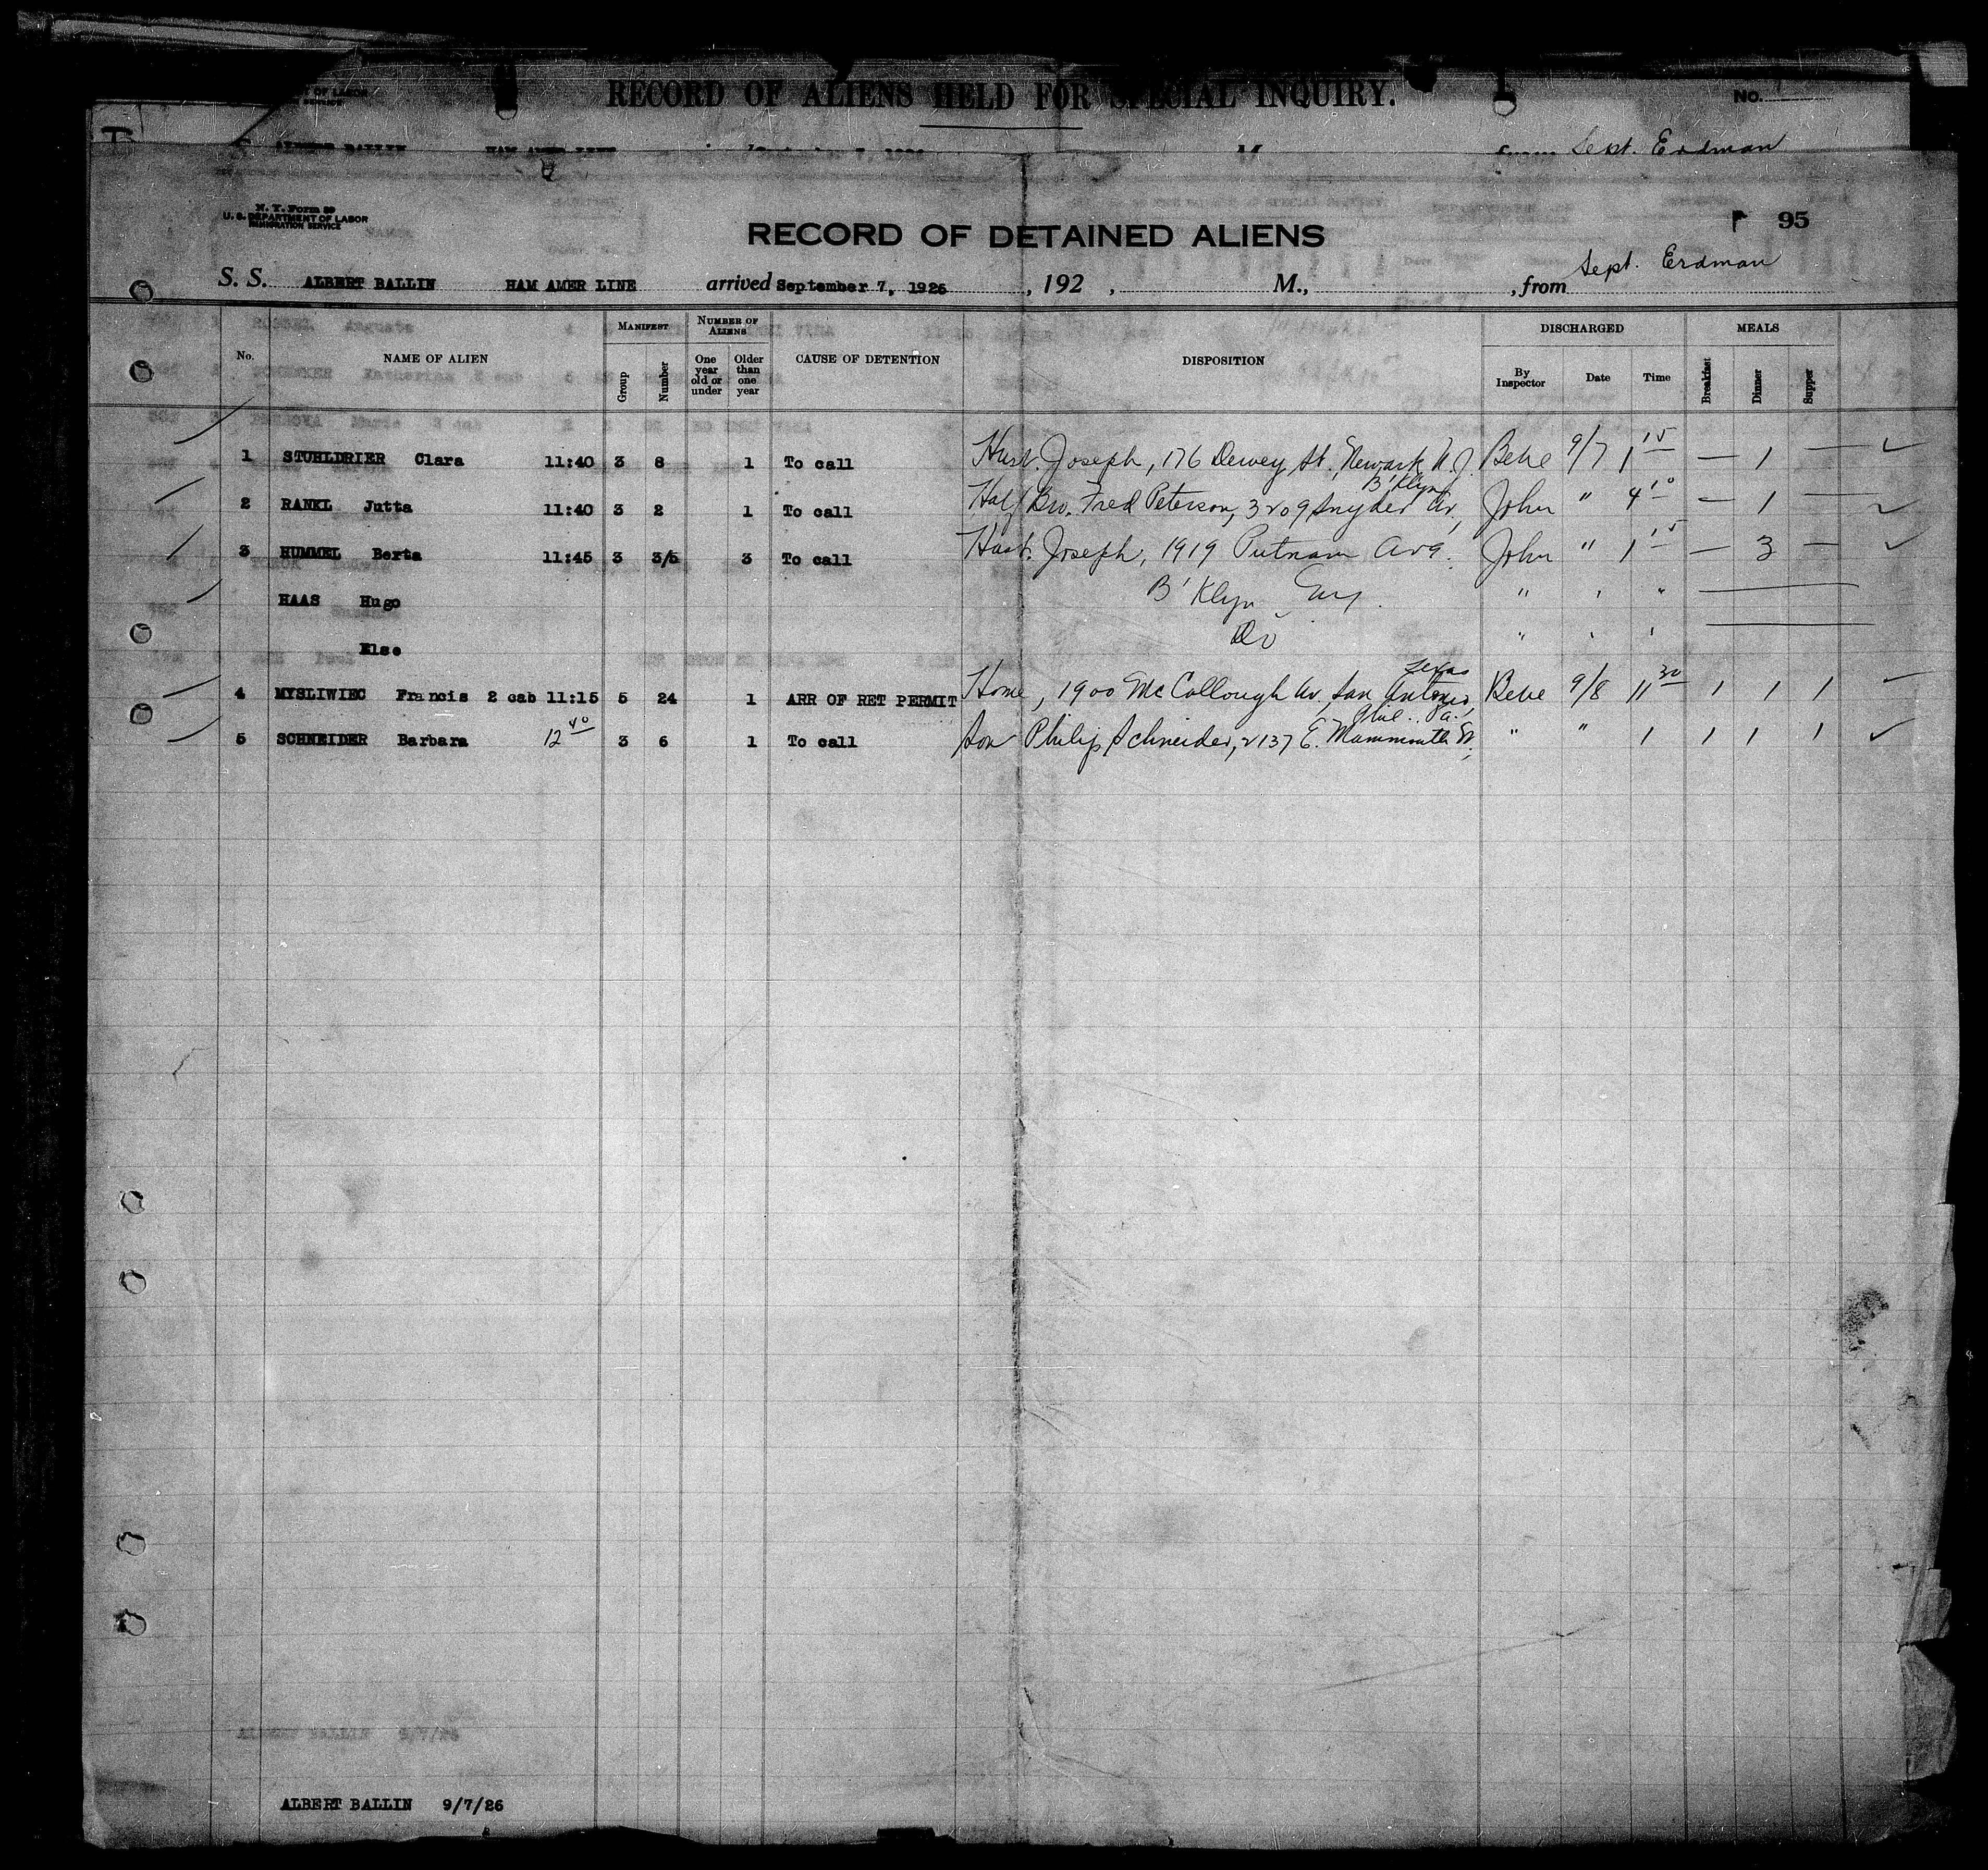 RECORD OF ALIENS HELD FOR SPECIAL INQUIRY.
No.
Sept. Erdman
N. Y. Form 89
U. S. DEPARTMENT OF LABOR
IMMIGRATION SERVICE
RECORD OF DETAINED ALIENS
95
S. S. ALBERT BALLIN HAM AMER LINE arrived September 7, 1926, 192 , M., , from Sept. Erdman
No. NAME OF ALIEN MANIFEST Group Number NUMBER OF ALIENS One year old or under Older than one year CAUSE OF DETENTION DISPOSITION DISCHARGED By Inspector Date Time MEALS Breakfast Dinner Supper
1 STUHLDRIER Clara 11:40 3 8 1 To call Husb. Joseph, 176 Dewey St. Newark N.J. Bebe 9/7 1 15 — 1 —
2 RANKL Jutta 11:40 3 2 1 To call Half Bro. Fred Peterson, 3209 Snyder Av, B'Klyn John " 4 10 — 1 —
3 HUMMEL Berta 11:45 3 3/5 3 To call Husb. Joseph, 1919 Putnam Ave. John " 1 15 — 3 —
HAAS Hugo B'Klyn " " "
Else Do " " "
4 MYSLIWIEC Francis 2 cab 11:15 5 24 1 ARR OF RET PERMIT Home, 1900 McCollough Av, San Antonio, Texas Bebe 9/8 11 30 1 1 1
5 SCHNEIDER Barbara 12 40 3 6 1 To call Son Philip Schneider, 2137 E. Mammouth St, Phil. Pa. " " 1 1 1 1
ALBERT BALLIN 9/7/26
ALBERT BALLIN 9/7/26